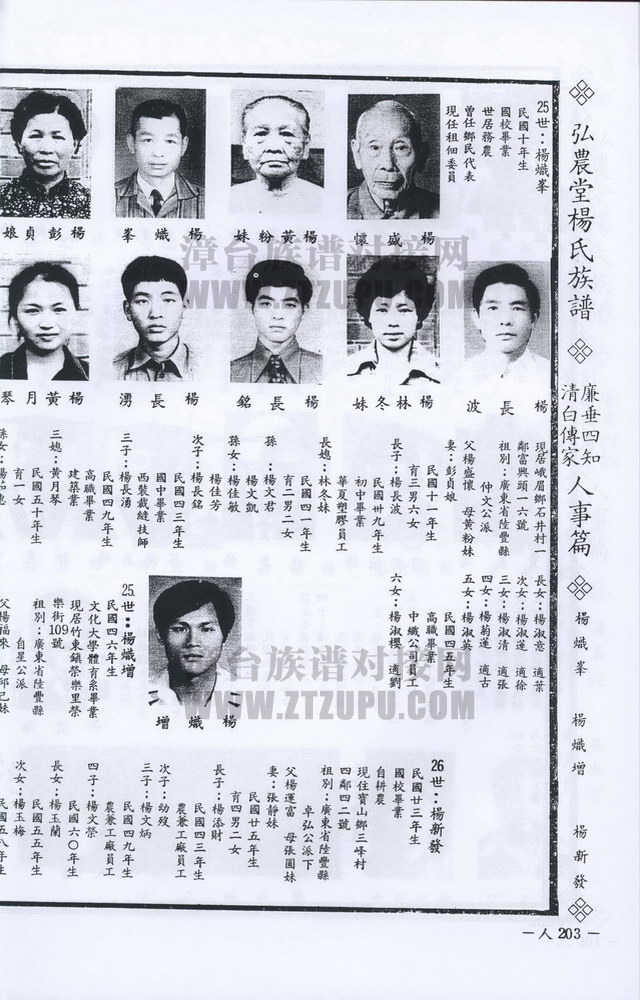 弘農堂楊氏族譜
廉垂四知
清白傳家
人事篇
楊熾峯
楊熾增
楊新發
－人203－
25世：楊熾峯
民國十年生
國校畢業
世居務農
曾任鄉民代表
現任租佃委員
楊盛懷
楊黃粉妹
楊熾峯
楊彭貞娘
楊長波
楊林冬妹
楊長銘
楊長湧
楊黃月琴
現居峨眉鄉石井村一
鄰富興頭一六號
祖別：廣東省陸豐縣
仲文公派
父楊盛懷 母黃粉妹
妻：彭貞娘
民國十一年生
育三男六女
長子：楊長波
民國卅九年生
初中畢業
華夏塑膠員工
長媳：林冬妹
民國四一年生
育二男二女
孫：楊文君
楊文凱
孫女：楊佳敏
楊佳芳
次子：楊長銘
民國四三年生
國中畢業
西裝裁縫技師
三子：楊長湧
民國四九年生
高職畢業
建築業
三媳：黃月琴
民國五十年生
育一女
長女：楊淑意 適葉
次女：楊淑蓮 適徐
三女：楊淑清 適張
四女：楊菊蓮 適古
五女：楊淑英
民國四五年生
高職畢業
中纖公司員工
六女：楊淑櫻 適劉
楊熾增
25世：楊熾增
民國四六年生
文化大學體育系畢業
現居竹東鎮榮樂里榮
樂街109號
祖別：廣東省陸豐縣
自星公派
父楊福來 母邱己妹
26世：楊新發
民國廿三年生
國校畢業
自耕農
現住寶山鄉三峰村
四鄰四二號
祖別：廣東省陸豐縣
卓弘公派下
父楊運富 母張圓妹
妻：張靜妹
民國廿五年生
育四男二女
長子：楊添財
民國四三年生
農兼工廠員工
次子：幼歿
三子：楊文炳
民國四九年生
農兼工廠員工
四子：楊文榮
民國六〇年生
長女：楊玉蘭
民國五五年生
次女：楊玉梅
民國五八年生
漳台族谱对接网
WWW.ZTZUPU.COM
台族谱对接网
WWW.ZTZUPU.COM